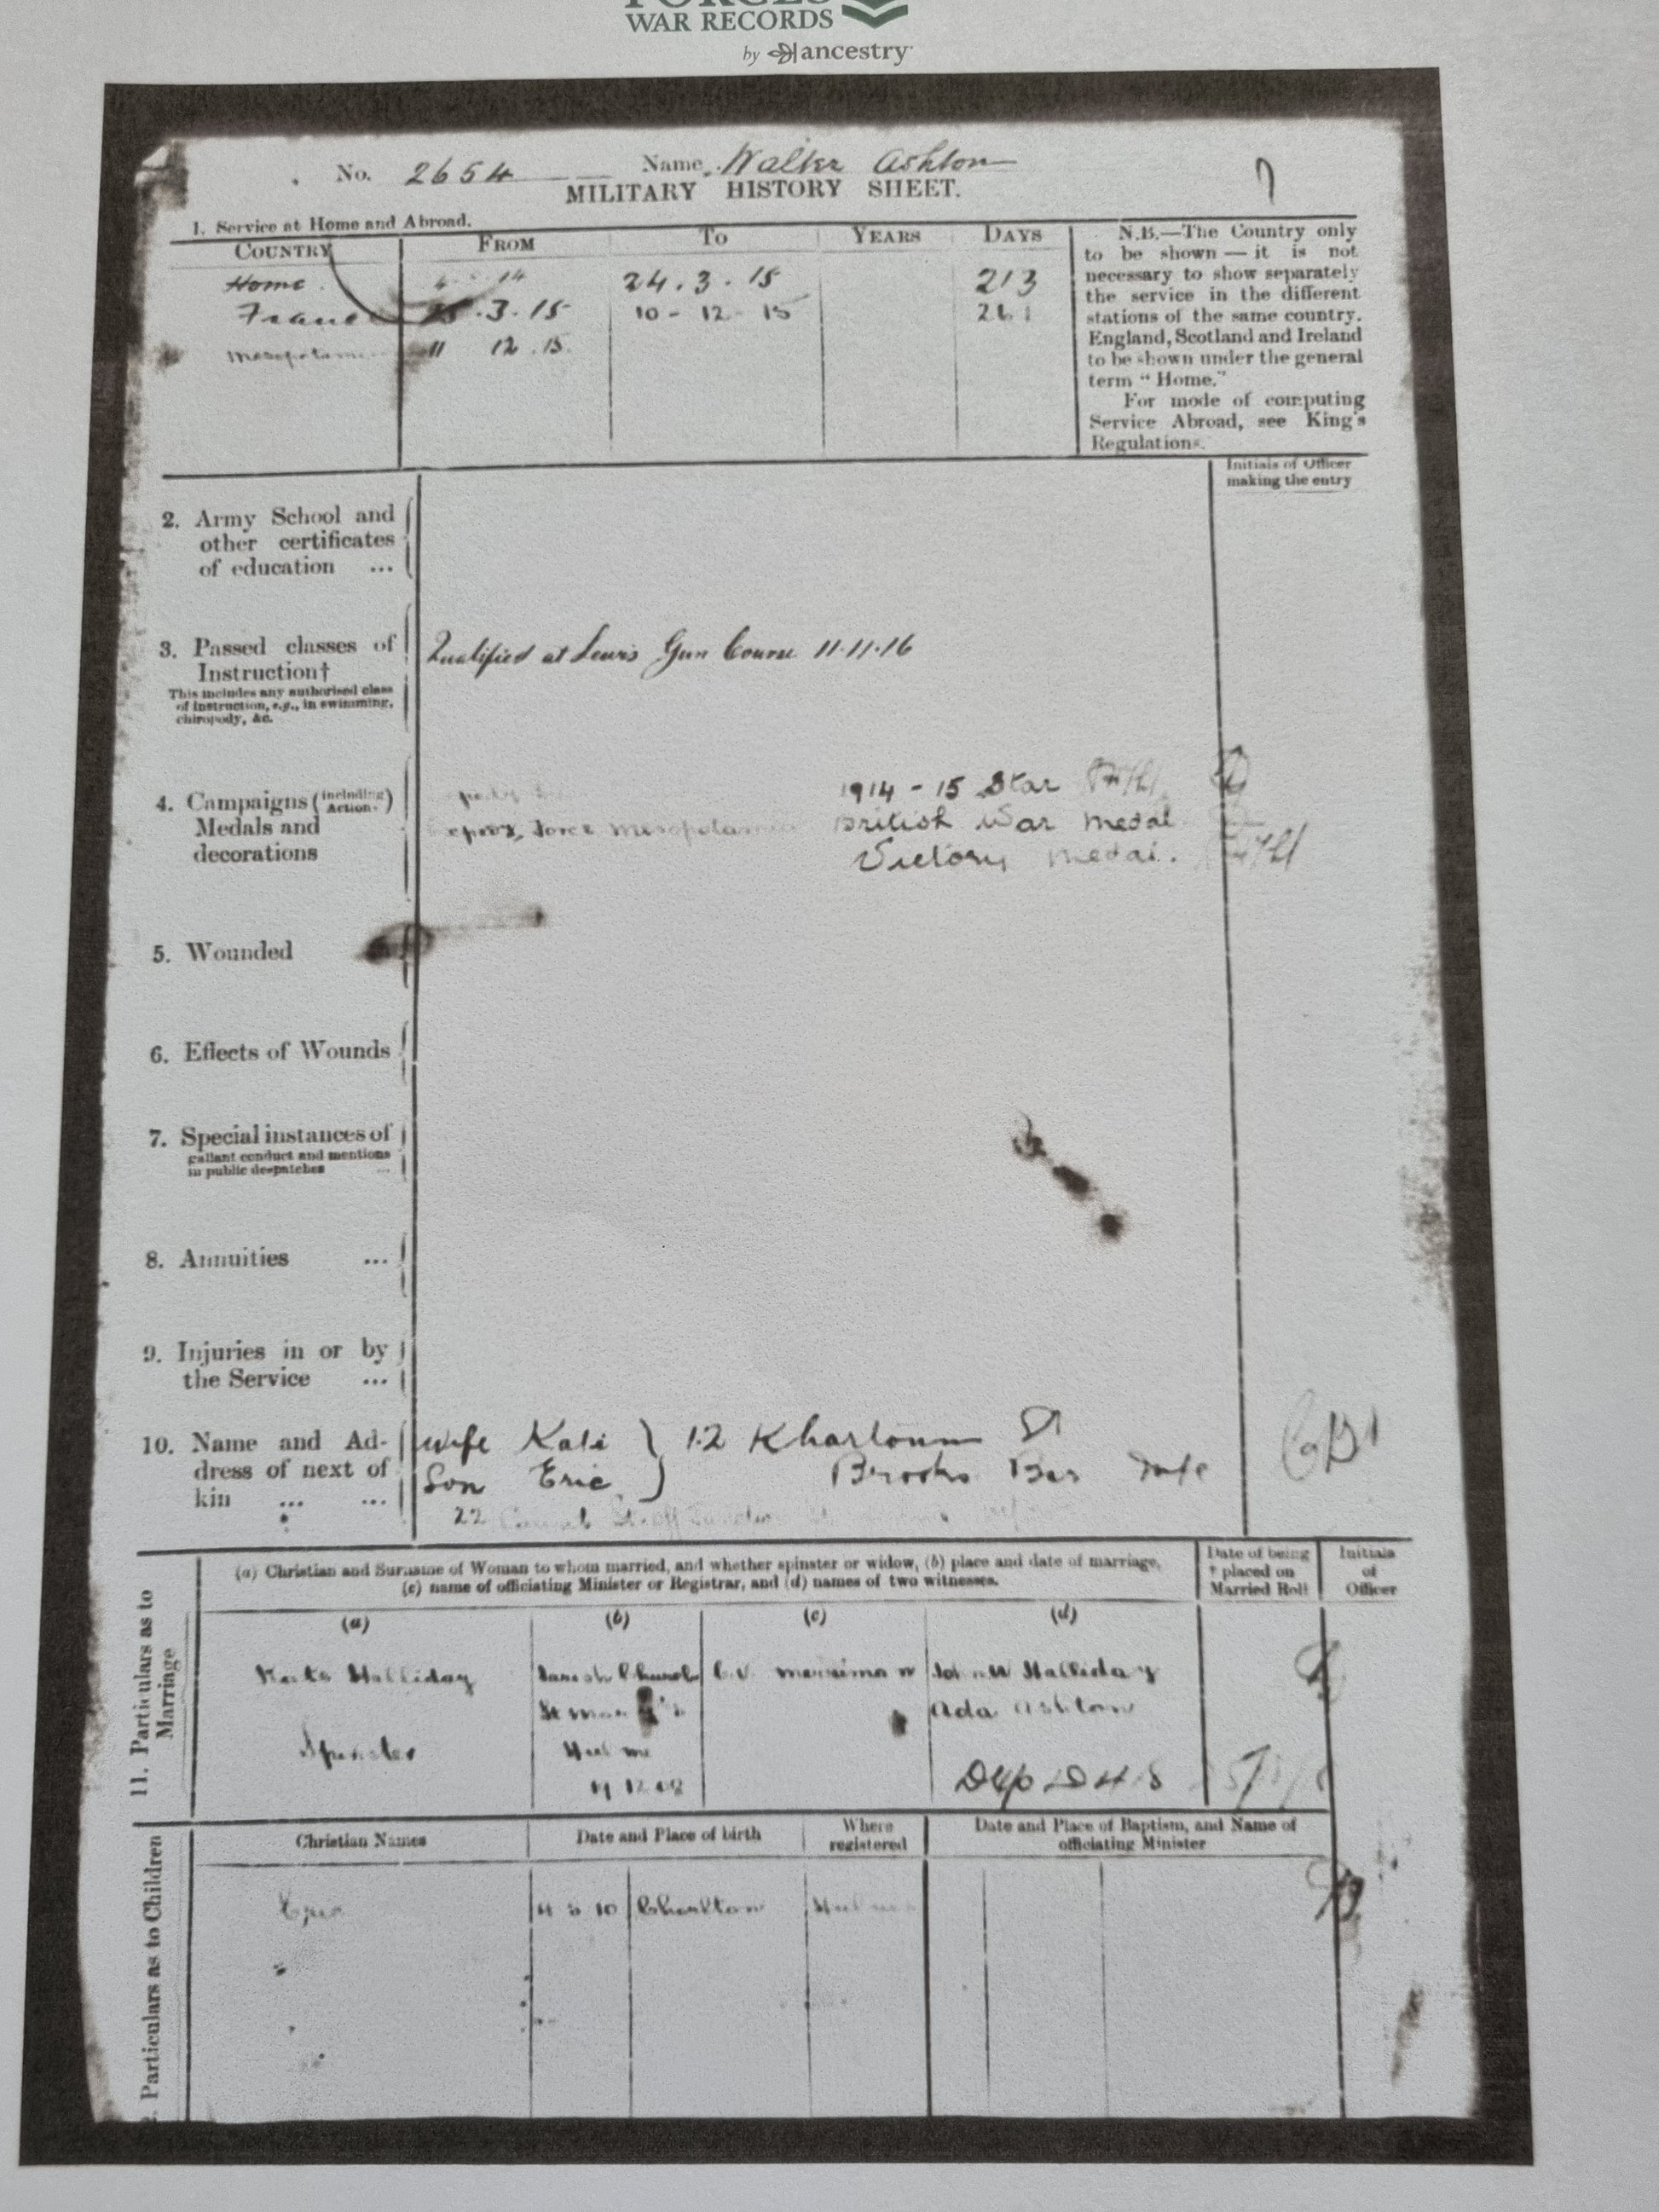 FORCES
WAR RECORDS
by ancestry
No. 2654 Name. Walter Ashton
MILITARY HISTORY SHEET.
1. Service at Home and Abroad.
COUNTRY FROM TO YEARS DAYS
Home 14 24.3.15 213
France 25.3.15 10-12-15 261
Mesopotamia 11 12.15.
N.B.—The Country only
to be shown — it is not
necessary to show separately
the service in the different
stations of the same country.
England, Scotland and Ireland
to be shown under the general
term "Home."
For mode of computing
Service Abroad, see King's
Regulations.
Initials of Officer
making the entry
2. Army School and
other certificates
of education ...
3. Passed classes of
Instruction†
This includes any authorised class
of instruction, e.g., in swimming,
chiropody, &c.
Qualified at Lewis Gun Course 11.11.16
4. Campaigns (including
Action-)
Medals and
decorations
1914-15 Star
Force Mesopotamia British War medal
Victory medal.
5. Wounded
6. Effects of Wounds
7. Special instances of
gallant conduct and mentions
in public despatches ...
8. Annuities ...
9. Injuries in or by
the Service ...
10. Name and Ad-
dress of next of
kin ... ...
Wife Kate } 12 Khartoum St
Son Eric } Brooks Bar
22
11. Particulars as to
Marriage
(a) Christian and Surname of Woman to whom married, and whether spinster or widow, (b) place and date of marriage,
(c) name of officiating Minister or Registrar, and (d) names of two witnesses.
Date of being
† placed on
Married Roll
Initials
of
Officer
(a) (b) (c) (d)
Kate Halliday Parish Church C.V. Merriman John W Halliday
St Ada Ashton
Spinster Hulme
Particulars as to Children
Christian Names Date and Place of birth Where
registered Date and Place of Baptism, and Name of
officiating Minister
Eric 4 5 10 Chorlton Hulme